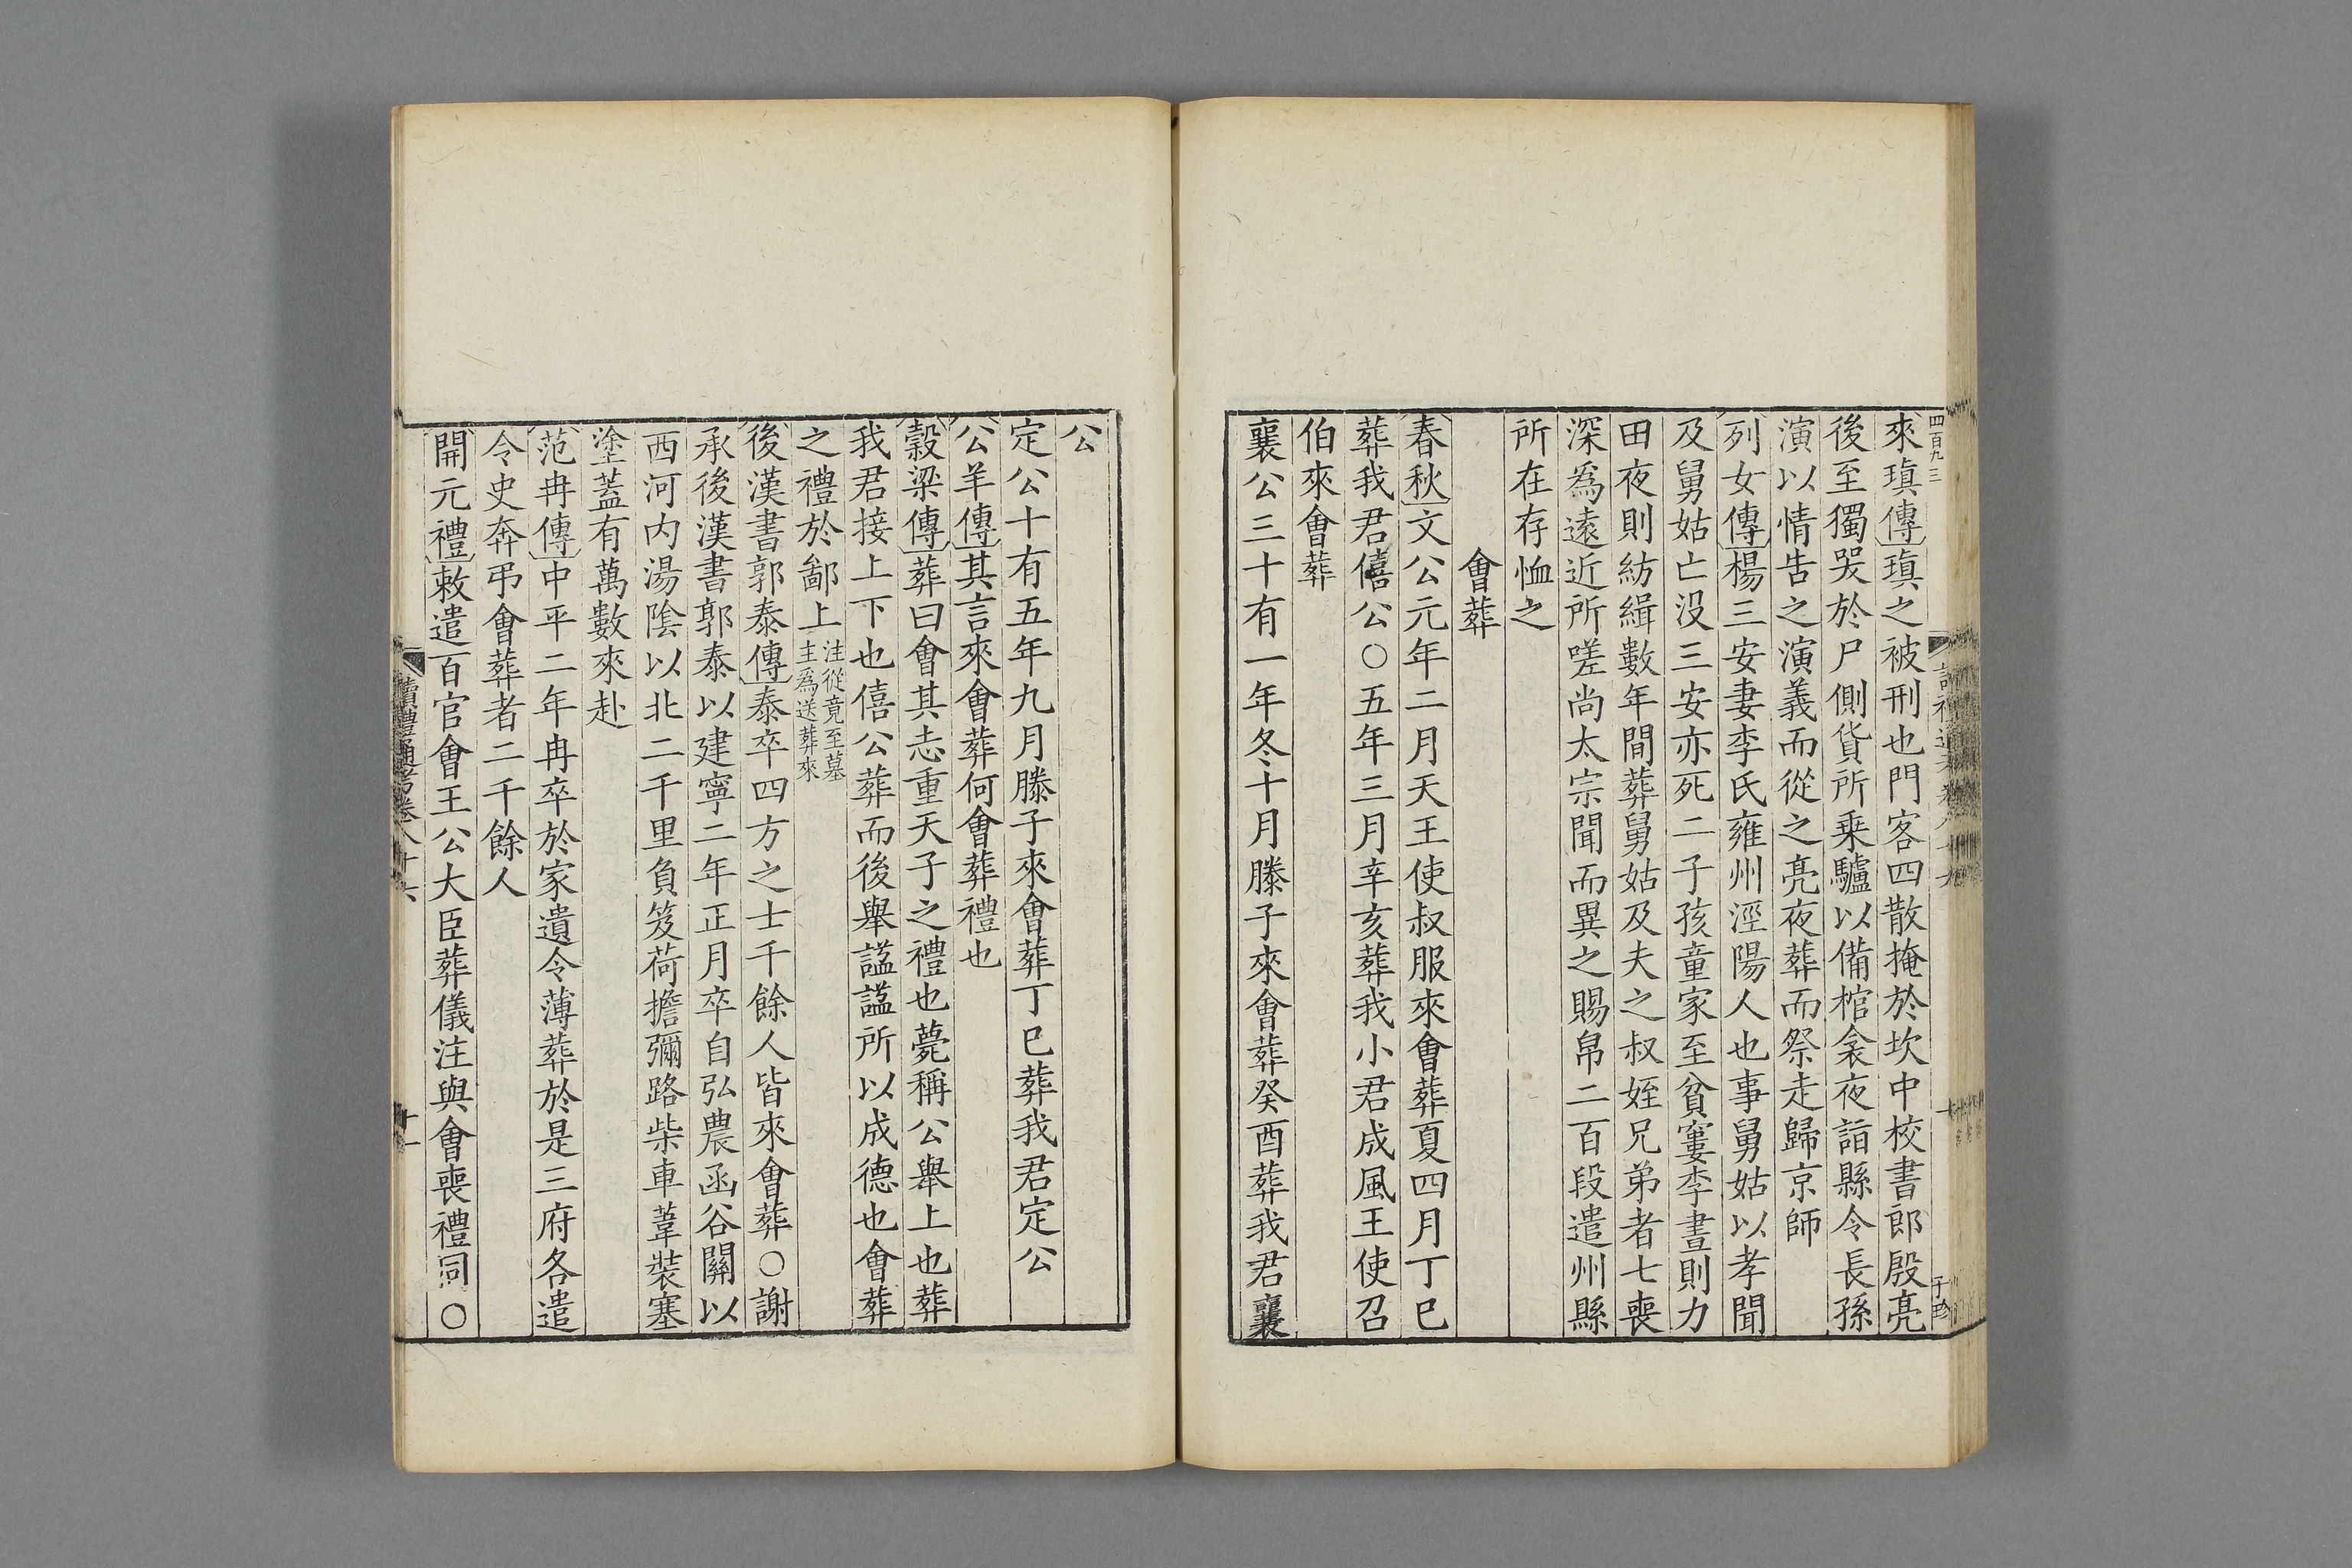 四百九三
來瑱傳瑱之被刑也門客四散掩於坎中校書郎殷亮
後至獨哭於尸側貨所乗驢以備棺衾夜詣縣令長孫
演以情告之演義而從之亮夜葬而祭走歸京師
列女傳楊三安妻李氏雍州涇陽人也事舅姑以孝聞
及舅姑亡没三安亦死二子孩童家至貧窶李晝則力
田夜則紡緝數年間葬舅姑及夫之叔姪兄弟者七喪
深爲遠近所嗟尚太宗聞而異之賜帛二百段遣州縣
所在存恤之
會葬
春秋文公元年二月天王使叔服來會葬夏四月丁巳
葬我君僖公○五年三月辛亥葬我小君成風王使召
伯來會葬
襄公三十有一年冬十月滕子來會葬癸酉葬我君襄
公
定公十有五年九月滕子來會葬丁巳葬我君定公
公羊傳其言來會葬何會葬禮也
穀梁傳葬曰會其志重天子之禮也薨稱公舉上也葬
我君接上下也僖公葬而後舉諡諡所以成德也會葬
之禮於鄙上注從竟至墓主爲送葬來
後漢書郭泰傳泰卒四方之士千餘人皆來會葬○謝
承後漢書郭泰以建寧二年正月卒自弘農函谷關以
西河内湯陰以北二千里負笈荷擔彌路柴車葦裝塞
塗蓋有萬數來赴
范冉傳中平二年冉卒於家遺令薄葬於是三府各遣
令史奔弔會葬者二千餘人
開元禮敕遣百官會王公大臣葬儀注與會喪禮同○
讀禮通考卷八十六
十一